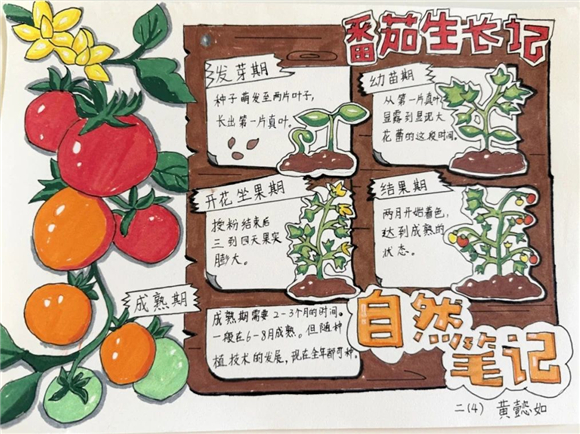 番茄生长记
发芽期
种子萌发至两片叶子,
长出第一片真叶。
幼苗期
从第一片真叶
显露到呈现大
花蕾的这段时间。
开花坐果期
授粉结束后
三到四天果实
膨大。
结果期
两月开始着色,
达到成熟的
状态。
成熟期
成熟期需要2-3个月的时间。
一般在6-8月成熟。但随种
植技术的发展,现在全年都可种。
自然
笔记
二(4) 黄懿如